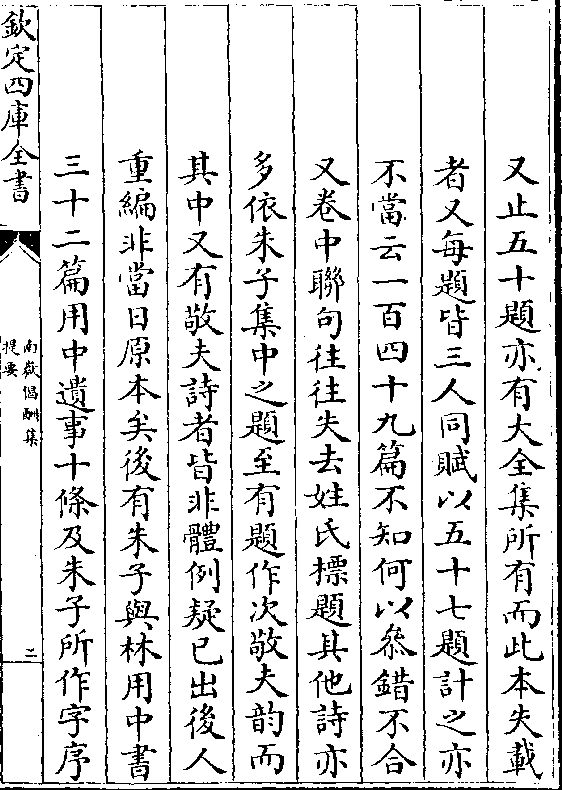 又止五十題亦有大全集所有而此本失載
者又每題皆三人同賦以五十七題計之亦
不當云一百四十九篇不知何以叅錯不合
又卷中聯句往往失去姓氏標題其他詩亦
多依朱子集中之題至有題作次敬夫韵而
其中又有敬夫詩者皆非體例疑已出後人
重編非當日原本矣後有朱子與林用中書
三十二篇用中遺事十條及朱子所作字序
欽定四庫全書
南嶽倡酬集
提要
二